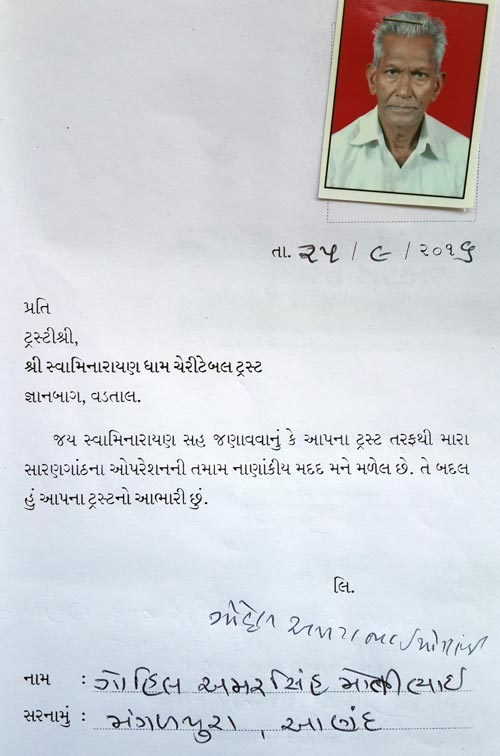 તા. ૨૫ / ૯ / ૨૦૧૬
પ્રતિ
ટ્રસ્ટીશ્રી,
શ્રી સ્વામિનારાયણ ધામ ચેરીટેબલ ટ્રસ્ટ
જ્ઞાનબાગ, વડતાલ.
જય સ્વામિનારાયણ સહ જણાવવાનું કે આપના ટ્રસ્ટ તરફથી મારા
સારણગાંઠના ઓપરેશનની તમામ નાણાંકીય મદદ મને મળેલ છે. તે બદલ
હું આપના ટ્રસ્ટનો આભારી છું.
લિ.
નામ : ગોહિલ અમરસિંહ મોતીભાઇ
સરનામું : મંગળપુરા , આણંદ